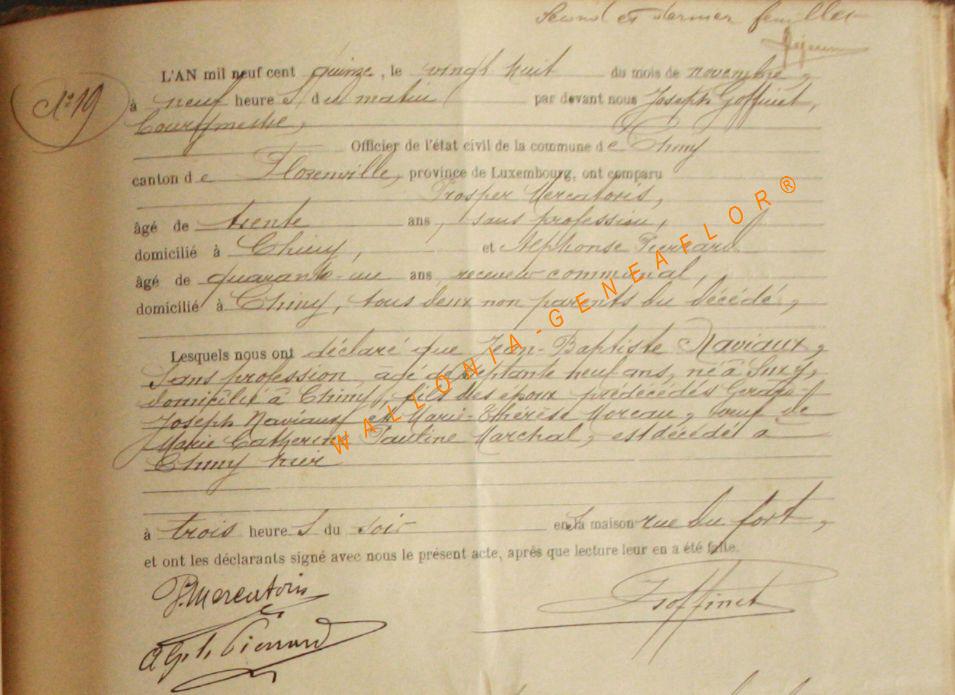 Second et dernier feuillet
N° 19
L'AN mil neuf cent quinze, le vingt huit du mois de novembre,
à neuf heure s du matin par devant nous Joseph Goffinet,
Bourgmestre,
Officier de l'état civil de la commune de Chiny
canton de Florenville, province de Luxembourg, ont comparu
Prosper Mercatoris,
âgé de trente ans, sans profession,
domicilié à Chiny, et Alphonse Pierrard
âgé de quarante-un ans, receveur communal,
domicilié à Chiny, tous deux non parents du décédé,
Lesquels nous ont déclaré que Jean-Baptiste Naviaux,
Sans profession, âgé de septante neuf ans, né à Suxy,
domicilié à Chiny, fils des époux prédécédés
Joseph Naviaux et Marie-Thérèse Moreau, veuf de
Marie Catherine Pauline Marchal, est décédé à
Chiny hier
à trois heure s du soir en sa maison rue du fort,
et ont les déclarants signé avec nous le présent acte, après que lecture leur en a été faite.
P. Mercatoris
J Goffinet
Alph Pierrard
WALLONIA-GENEAFLOR®